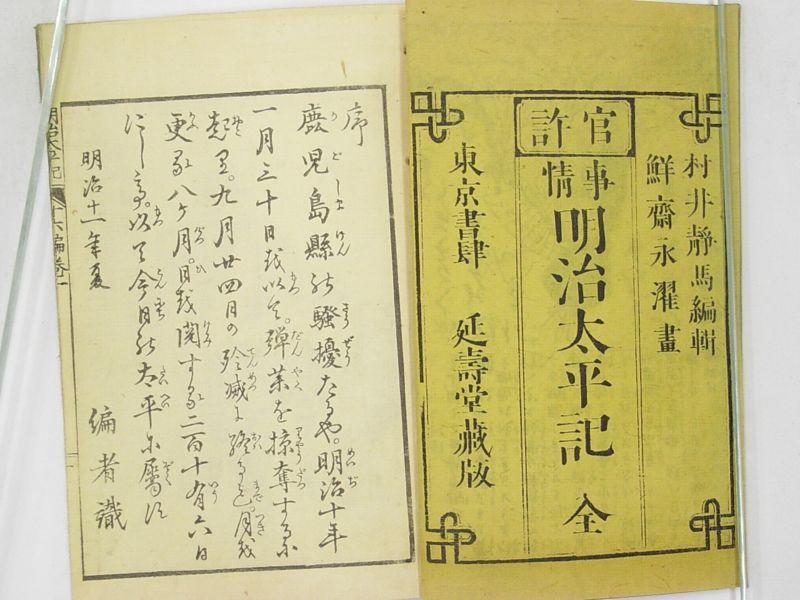 村井靜馬編輯
鮮齋永濯畫
官許
事情明治太平記 全
東京書肆 延壽堂藏版
序
鹿児島縣の騒擾たるや。明治十年
一月三十日を以て。弾薬を掠奪するに
起り。九月廿四日の殄滅に終る迄。月を
更る八ヶ月。日を関する二百十有六日
にして。以て今日の太平に属す
明治十一年夏
編者識
明治太平記 十六編巻一